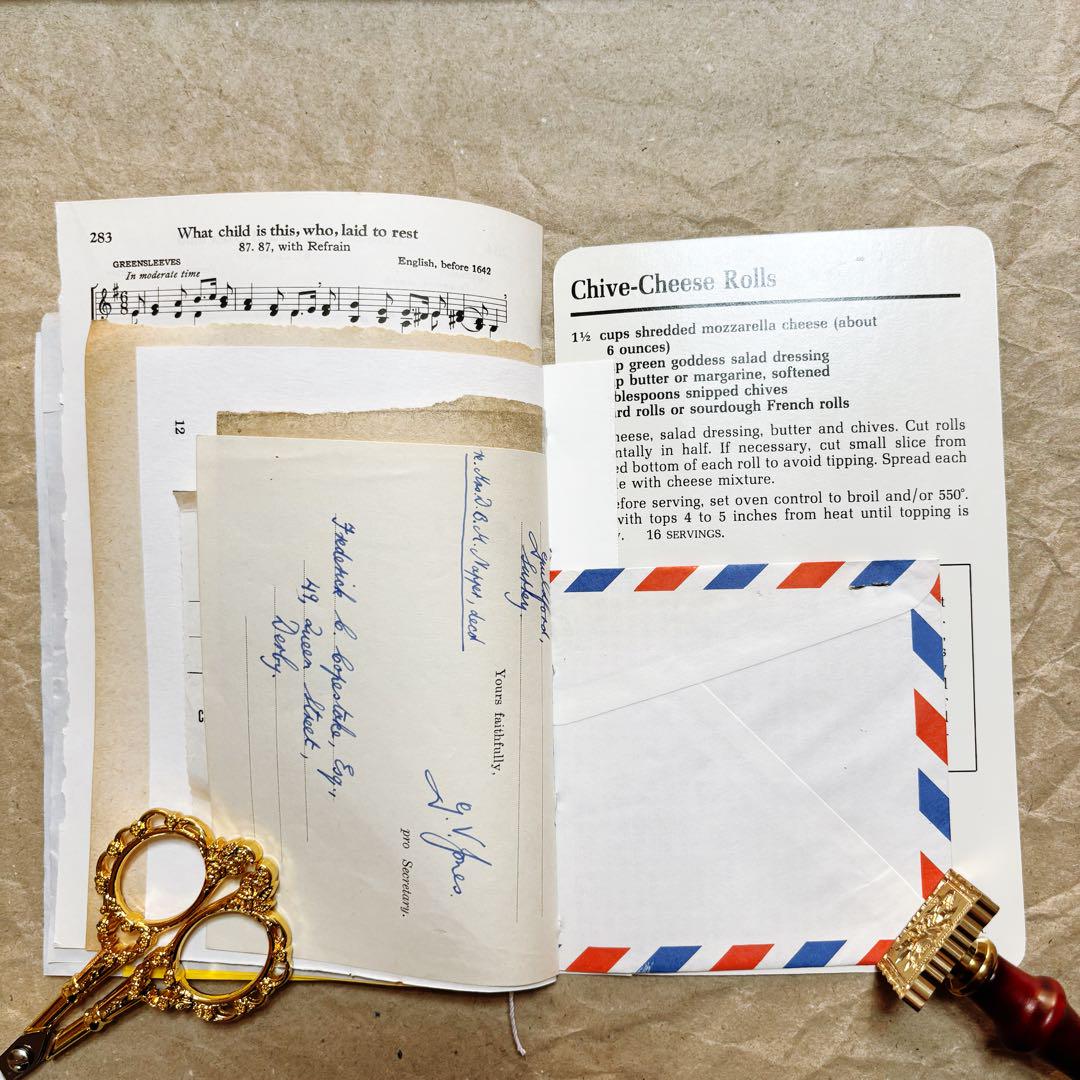 283
What child is this, who, laid to rest
87. 87, with Refrain
GREENSLEEVES
English, before 1642
In moderate time
12
C
Guildford,
Surrey.
re. Mrs. D. B. M. Napper, decd
Yours faithfully,
G. V. Jones.
pro Secretary.
Frederick C. Copestake, Esq.,
49, Queen Street,
Derby.
Chive-Cheese Rolls
1½ cups shredded mozzarella cheese (about
6 ounces)
p green goddess salad dressing
p butter or margarine, softened
blespoons snipped chives
rd rolls or sourdough French rolls
heese, salad dressing, butter and chives. Cut rolls
ntally in half. If necessary, cut small slice from
ed bottom of each roll to avoid tipping. Spread each
e with cheese mixture.
efore serving, set oven control to broil and/or 550°.
with tops 4 to 5 inches from heat until topping is
y. 16 SERVINGS.